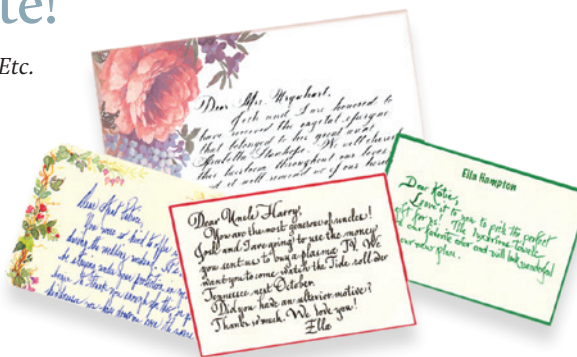 te!
Etc.
Dear Mrs. Urquhart,
Josh and I are honored to
have received the crystal epergne
that belonged to his great aunt
Arabella Stanhope. We will cherish
this heirloom throughout our lives
and it will remind us of our
Dear Aunt
You were so kind to offer
during the wedding weekend.
be staying under your
to thank you enough for the
kindness you have shown
Dear Uncle Harry,
You are the most generous of uncles!
Josh and I are going to use the money
you sent us to buy a plasma TV. We
want you to come watch the Tide roll over
Tennessee next October.
Did you have an ulterior motive?
Thanks so much. We love you!
Ella
Ella Hampton
Dear Katie,
Leave it to you to pick the perfect
gift for us. The tangerine towels
our favorite color and will look wonderful
our new place.